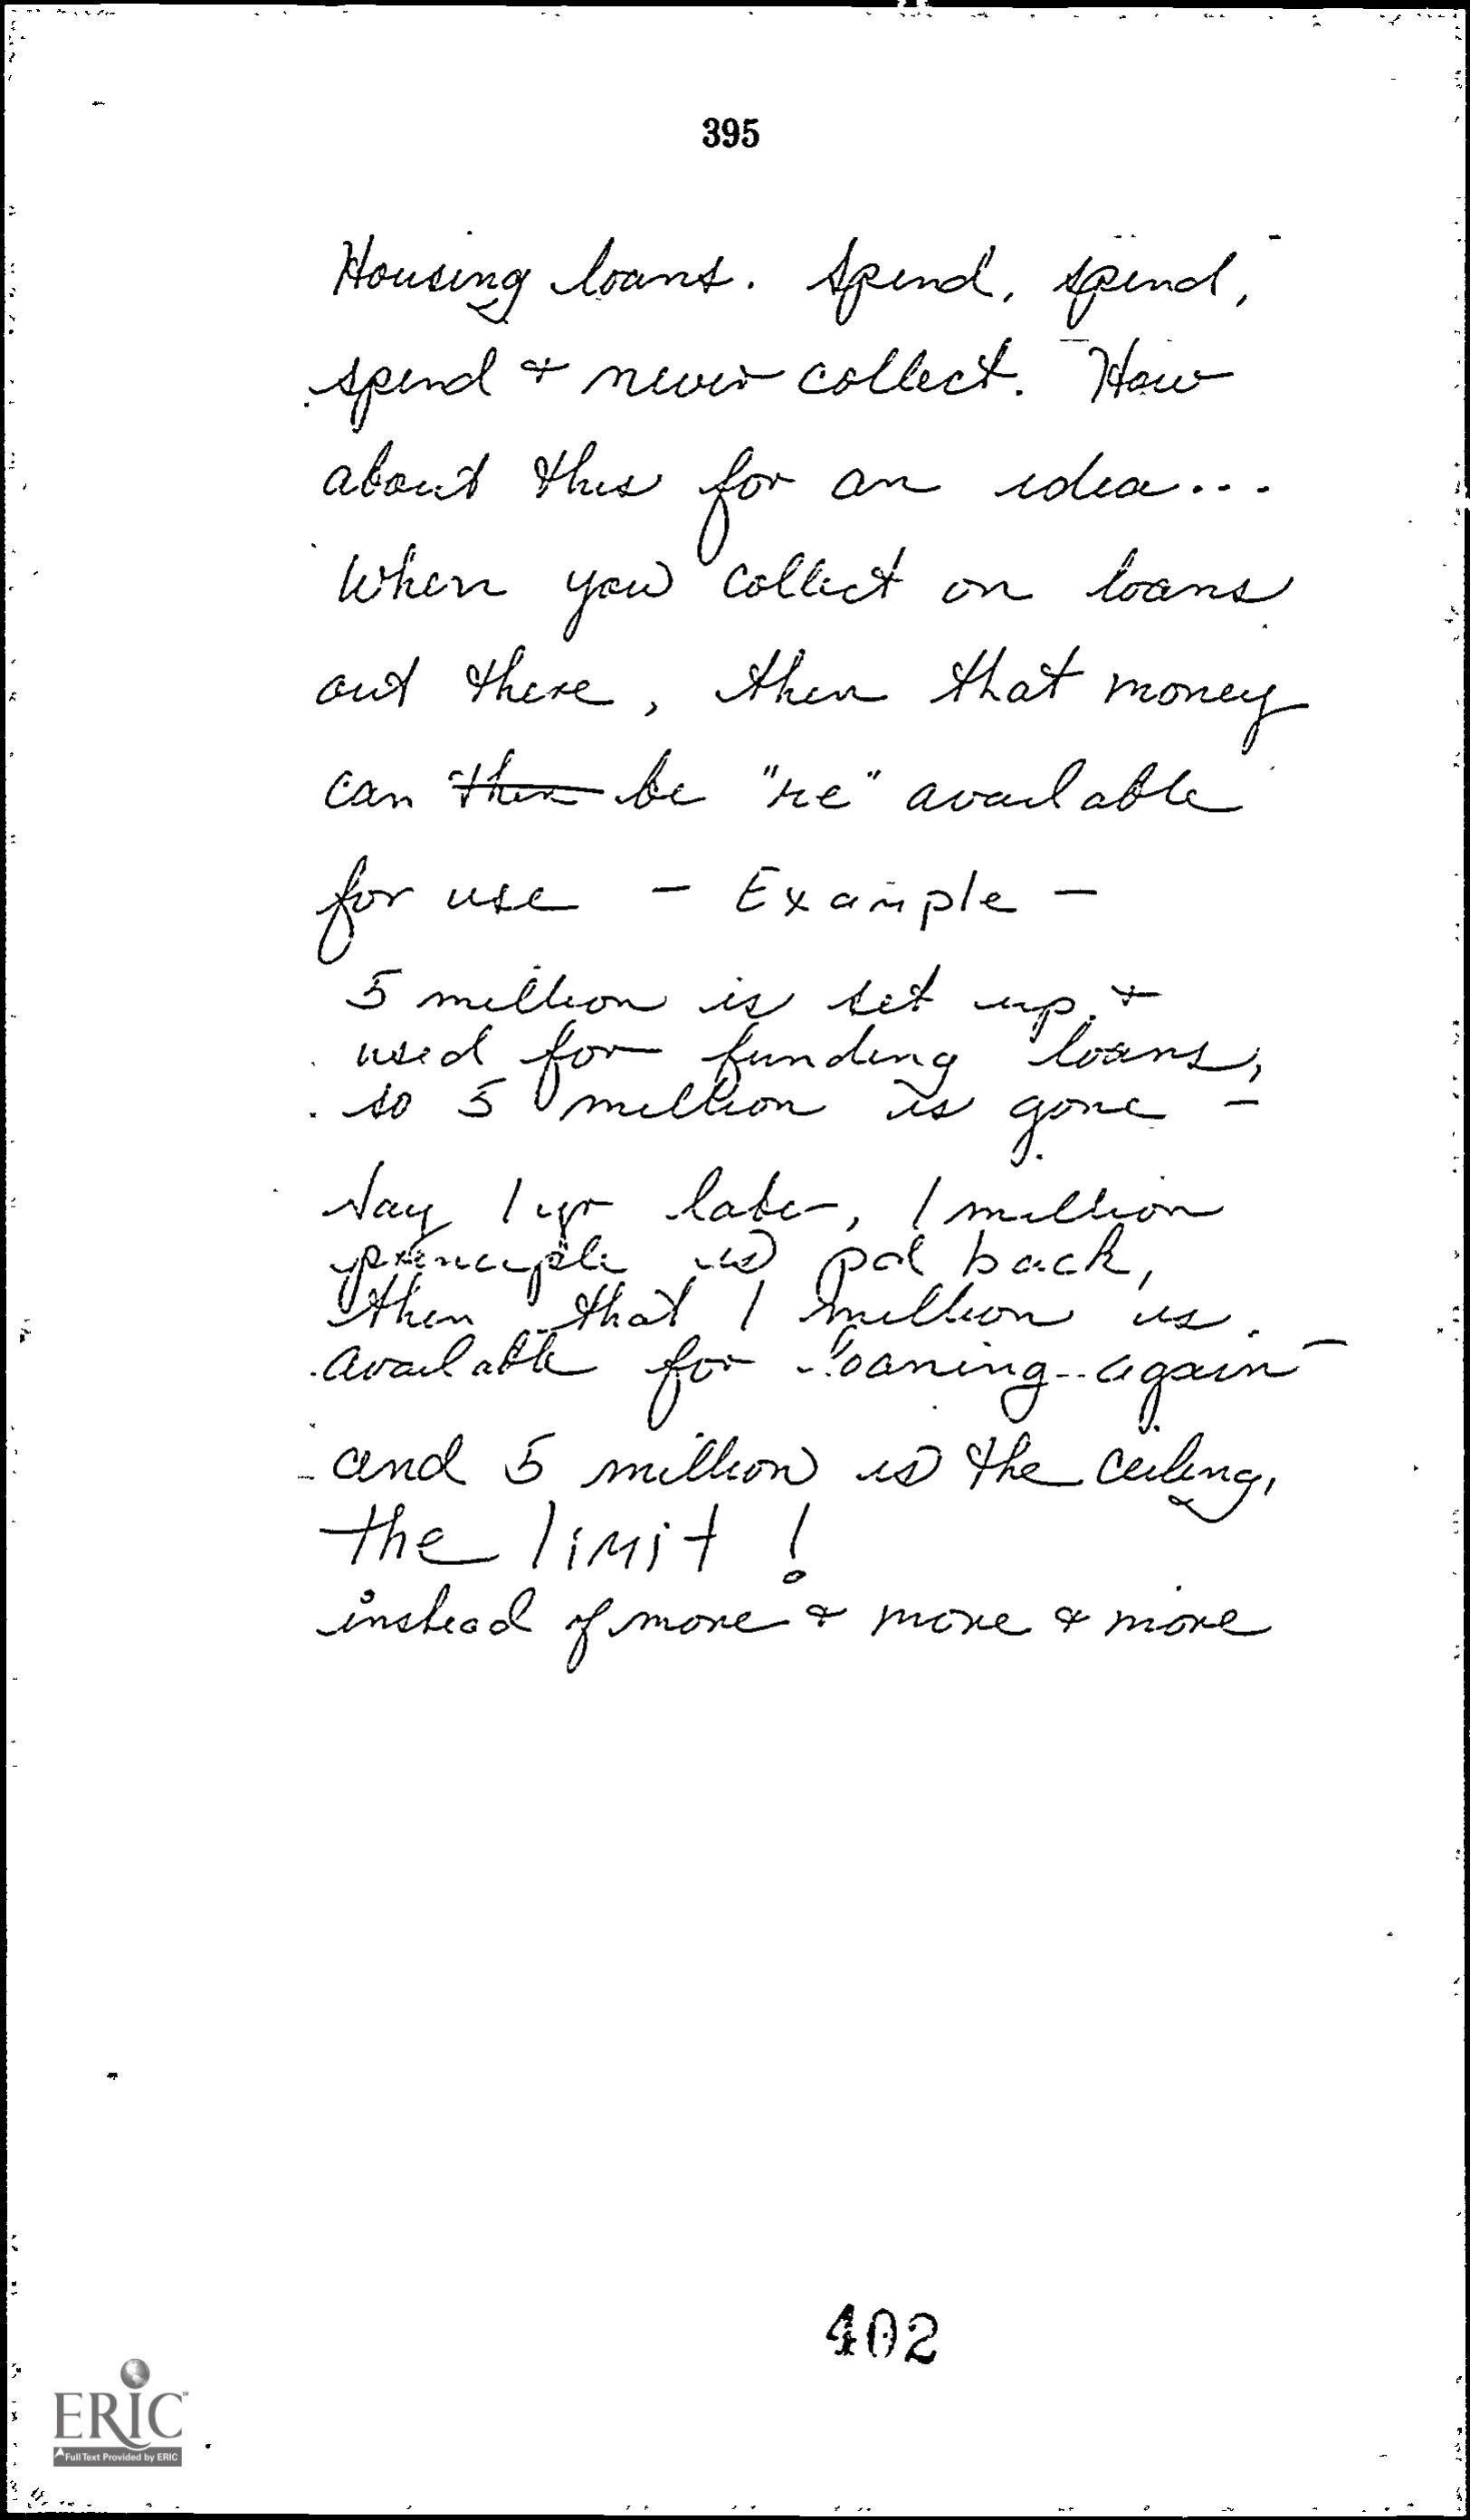 395
Housing loans. Spend, spend,
spend & never collect. How
about this for an idea...
When you collect on loans
out there, then that money
can then be "re" available
for use - Example -
5 million is set up &
used for funding loans,
so 5 million is gone -
Say 1 yr later, 1 million
principle is pd back,
then that 1 million is
available for loaning again -
and 5 million is the ceiling,
the limit!
instead of more & more & more
402
ERIC
Full Text Provided by ERIC